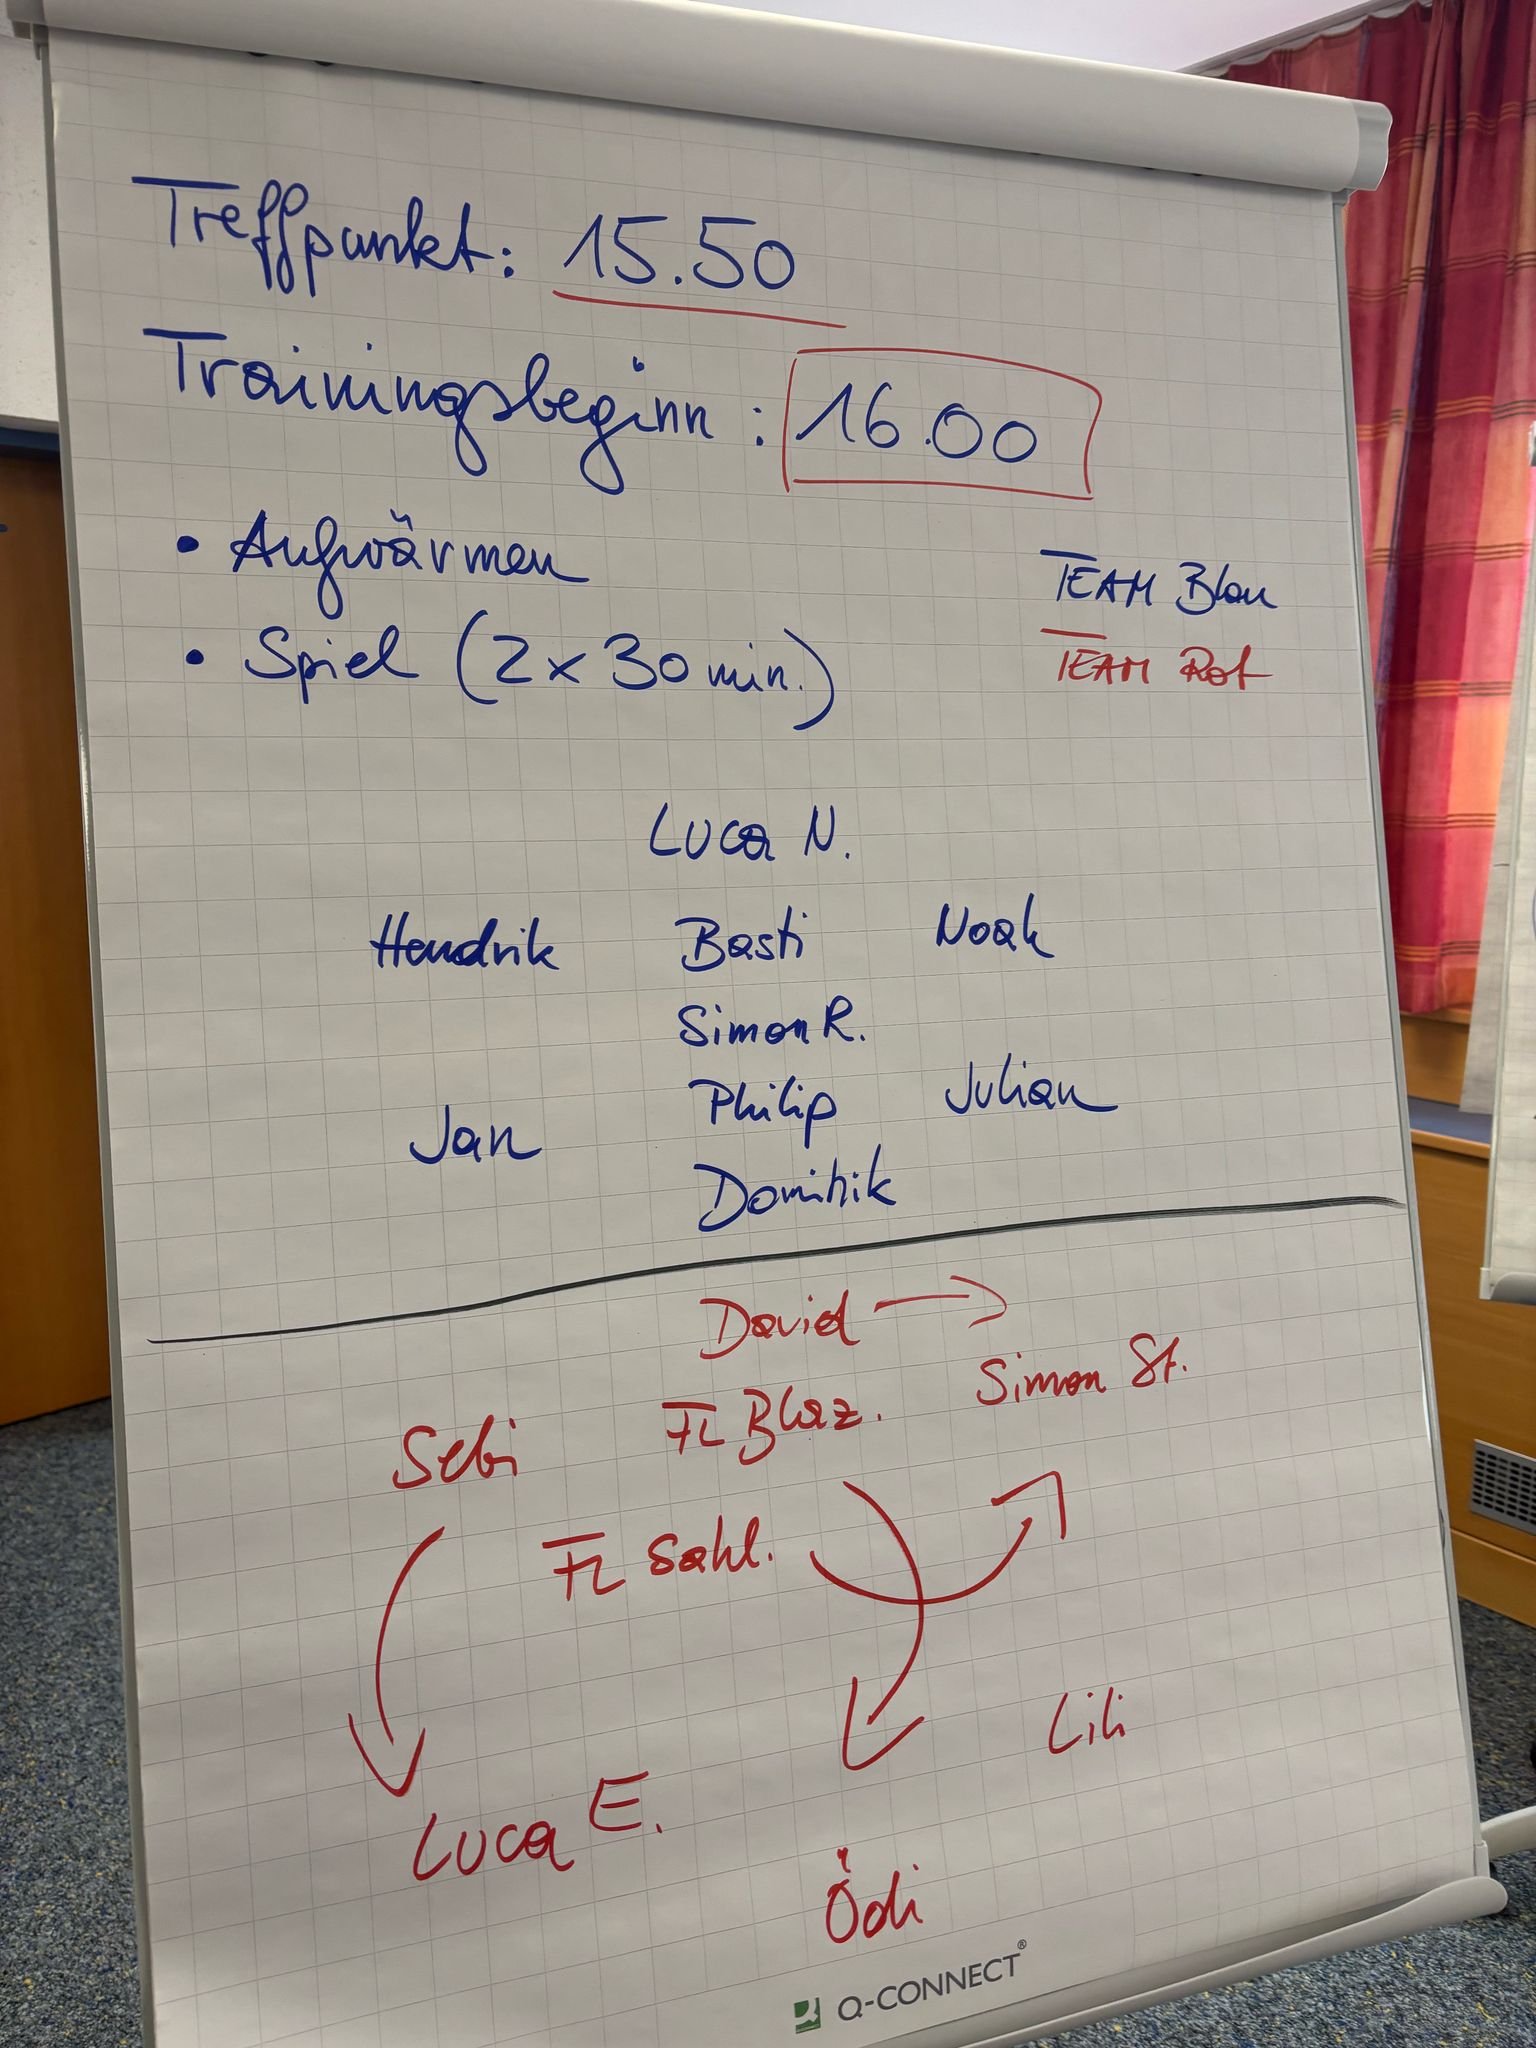 Treffpunkt: 15.50
Trainingsbeginn: 16.00
• Aufwärmen
• Spiel (2 x 30 min.)
TEAM Blau
TEAM Rot
Luca N.
Hendrik Basti Noah
Simon R.
Jan Philip Julian
Dominik
David →
Sebi FL Blaz. Simon St.
FL Sahl.
Lili
Luca E.
Ödi
Q-CONNECT®